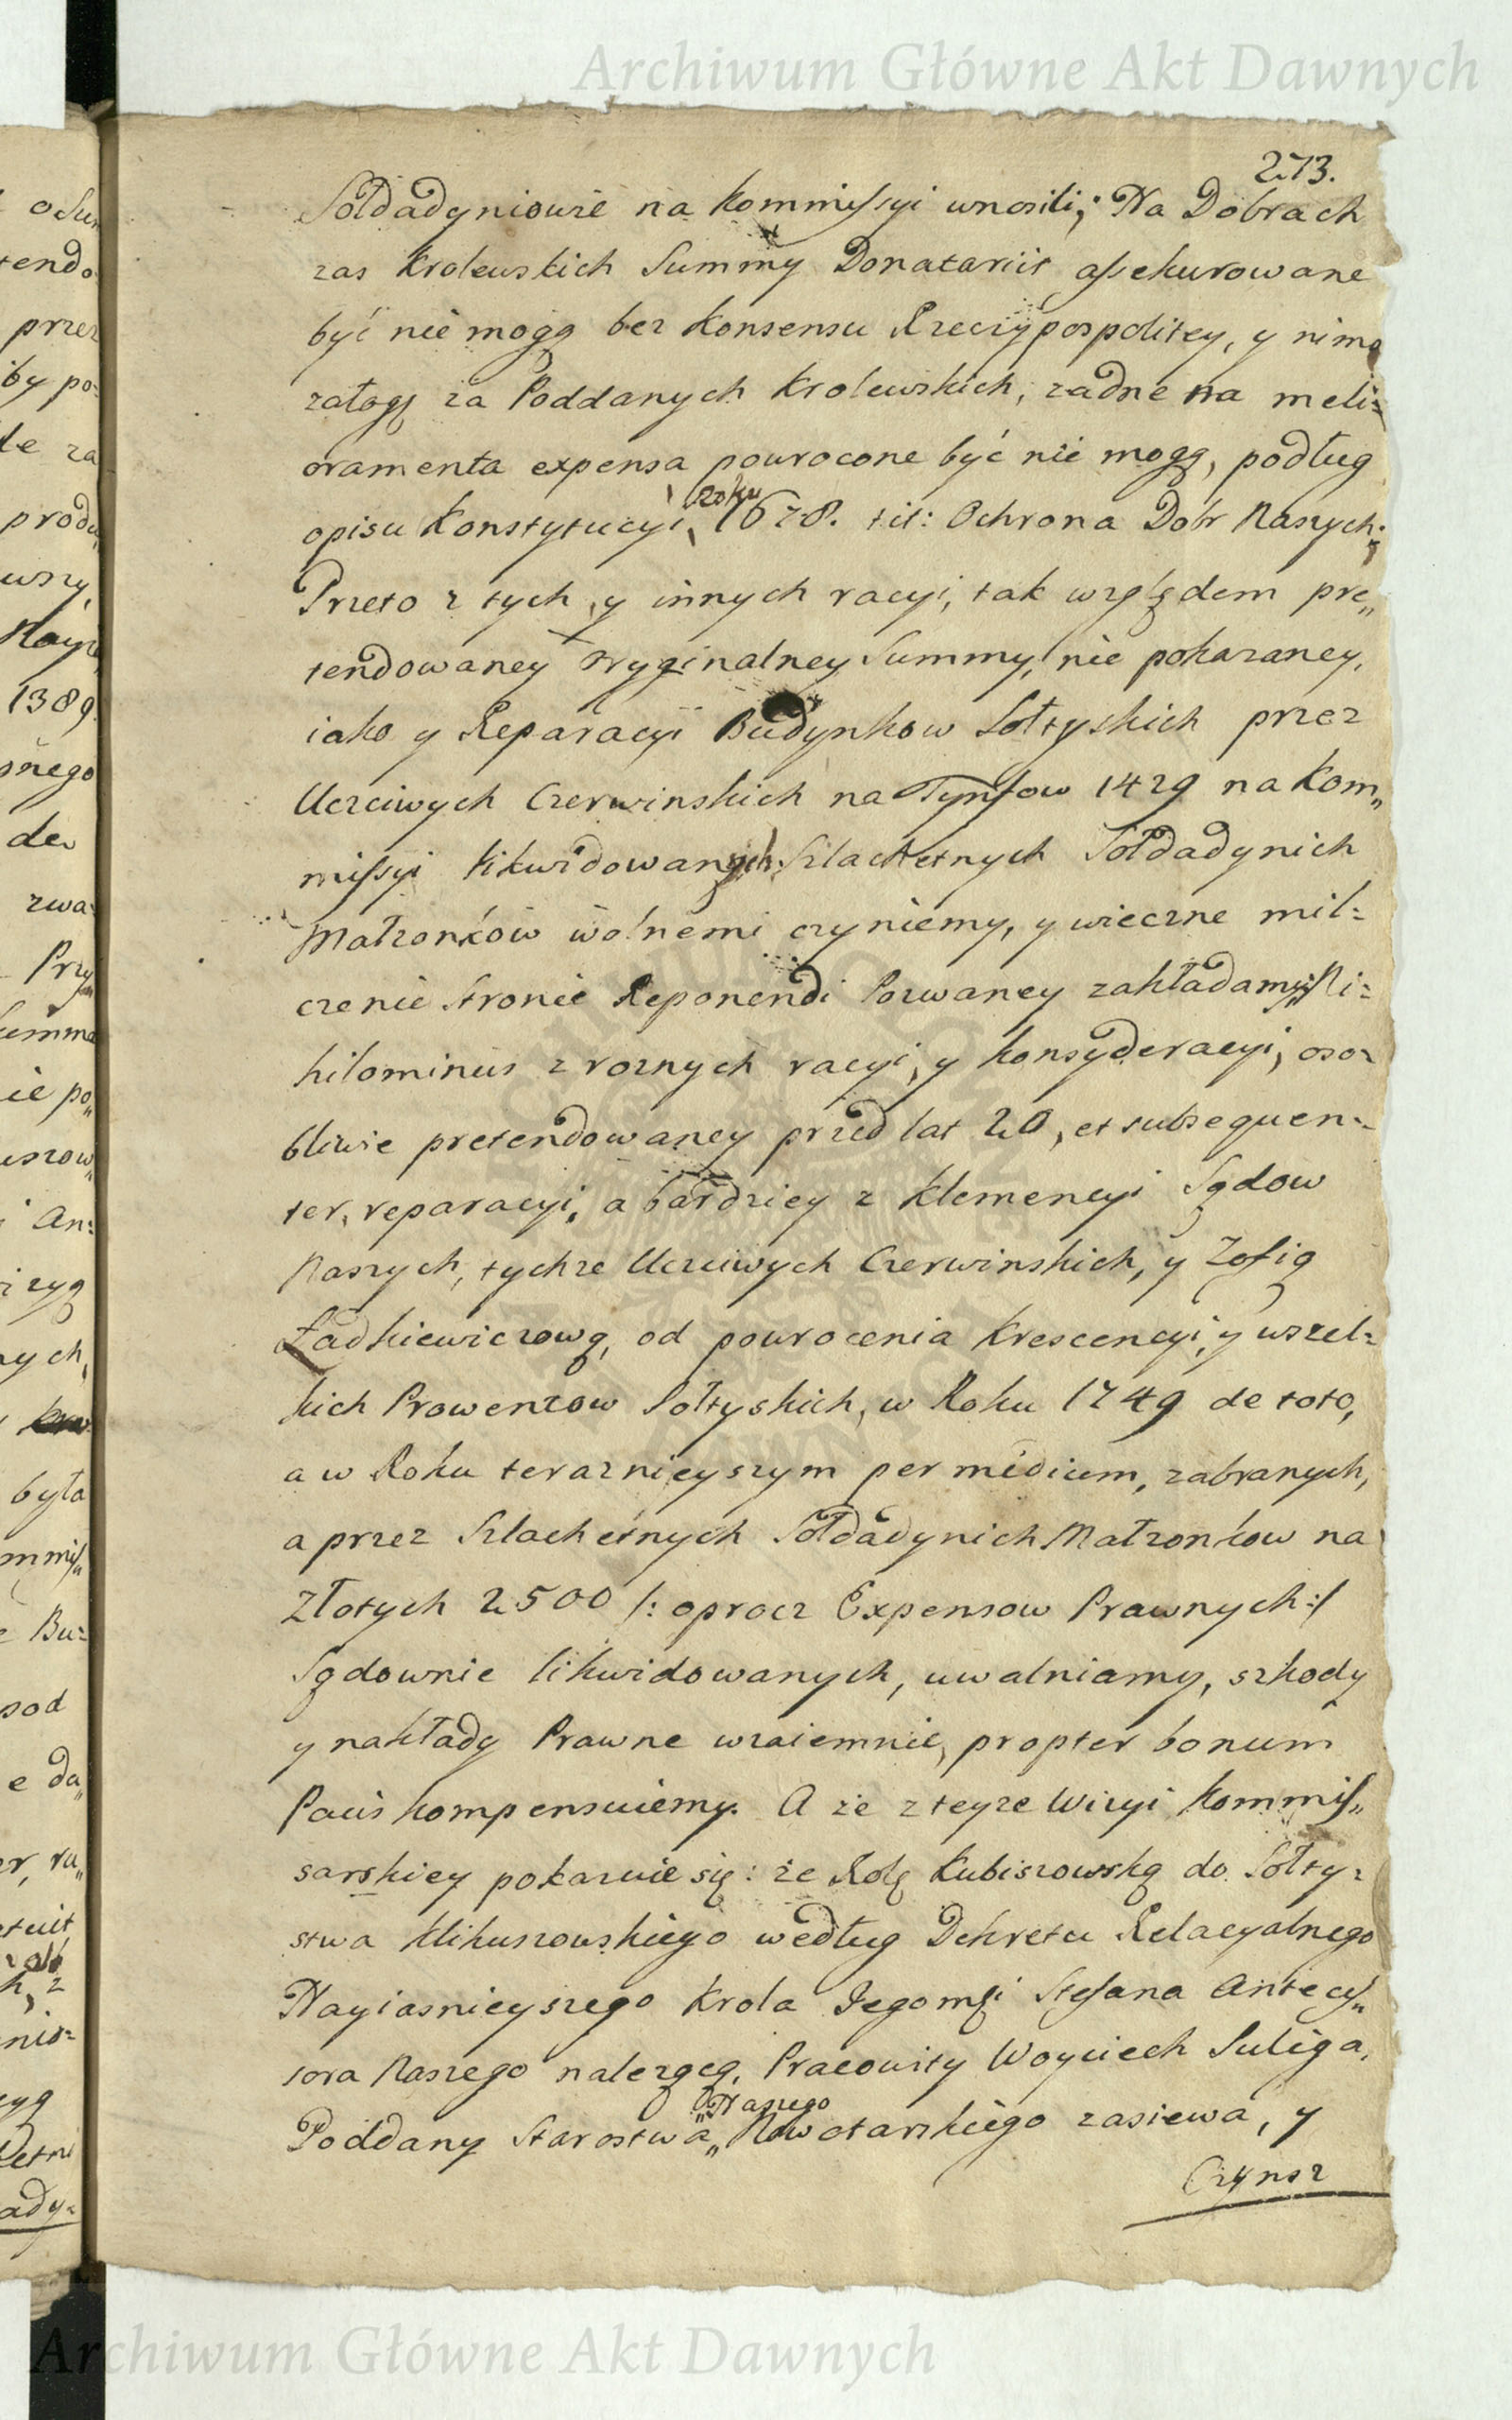 Archiwum Główne Akt Dawnych
273.
Sołdadyniowie na Kommissyi wnosili; Na Dobrach
zas Krolewskich Summy Donatariis assekurowane
być nie mogą bez Konsensu Rzeczypospolitey, y nimo
załogę za Poddanych Krolewskich, zadne na meli=
oramenta expensa powrocone być nie mogą, podług
opisu Konstytucyi Roku 1678. tit: Ochrona Dobr Naszych;
Przeto z tych y innych racyi, tak względem pre„
tendowaney Oryginalney Summy, nie pokazaney,
iako y Reparacyi Budynkow Sołtyskich przez
Uczciwych Czerwinskich na Tynfow 1429 na Kom„
missyi likwidowanych Szlachetnych Sołdadynich
Małzonkow wolnemi czyniemy, y wieczne mil=
czenie Stronie Reponendi Pozwaney zakładamy; Ni=
hilominus z roznych racyi, y konsyderacyi, oso=
bliwie pretendowaney przed lat 20, et subsequen=
ter, reparacyi, a bardziey z Klemencyi Sądow
Naszych, tychze Uczciwych Czerwinskich, y Zofią
Ładkiewiczową, od powrocenia Krescencyi, y wszel=
kich Prowentow Sołtyskich, w Roku 1749 de toto,
a w Roku teraznieyszym per medium, zabranych,
a przez Szlachetnych Sołdadynich Małzonkow na
Złotych 2500 /: oprocz Expensow Prawnych :/
Sądownie likwidowanych, uwalniamy, szkody
y nakłady Prawne wzaiemnie, propter bonum
Pacis kompensuiemy. A że z teyze Wizyi Kommis„
sarskiey pokazuie się: że Rolę Kubiszowską do Sołty=
stwa Klikuszowskiego według Dekretu Relacyalnego
Nayiasnieyszego Krola Jegomsi Stefana Antecys„
sora Naszego nalezącą, Pracowity Woyciech Suliga,
Poddany Starostwa „Naszego Nowotarskiego zasiewa, y
Czynsz
Archiwum Główne Akt Dawnych